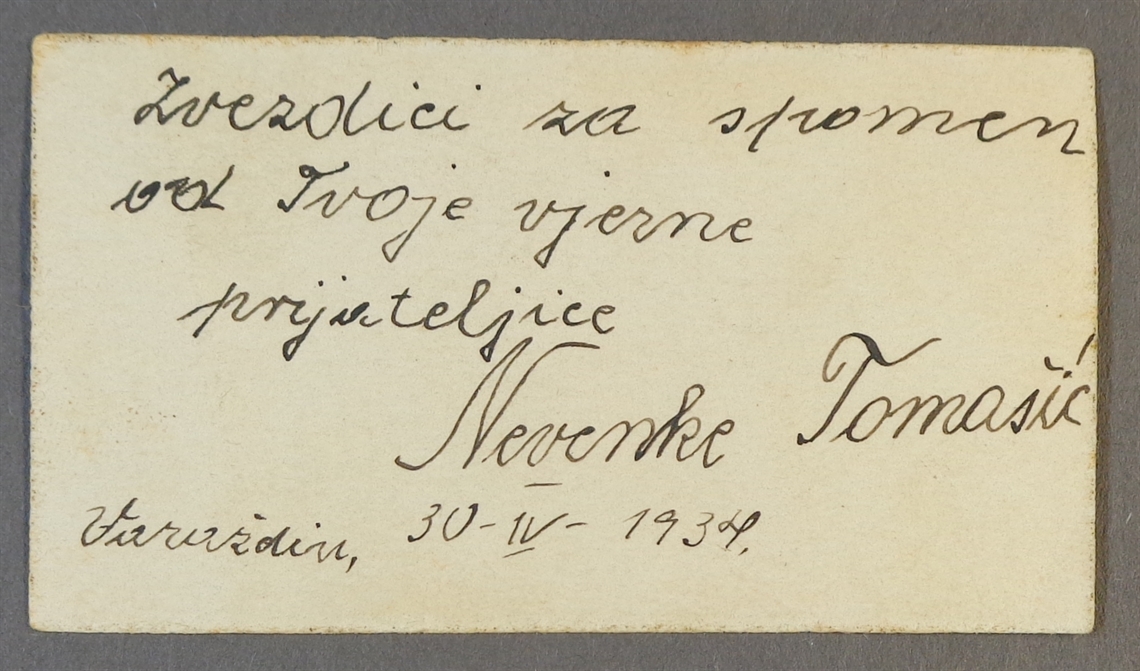 Zvezdici za spomen
od Tvoje vjerne
prijateljice
Nevenke Tomašić
Varaždin, 30-IV-1934.